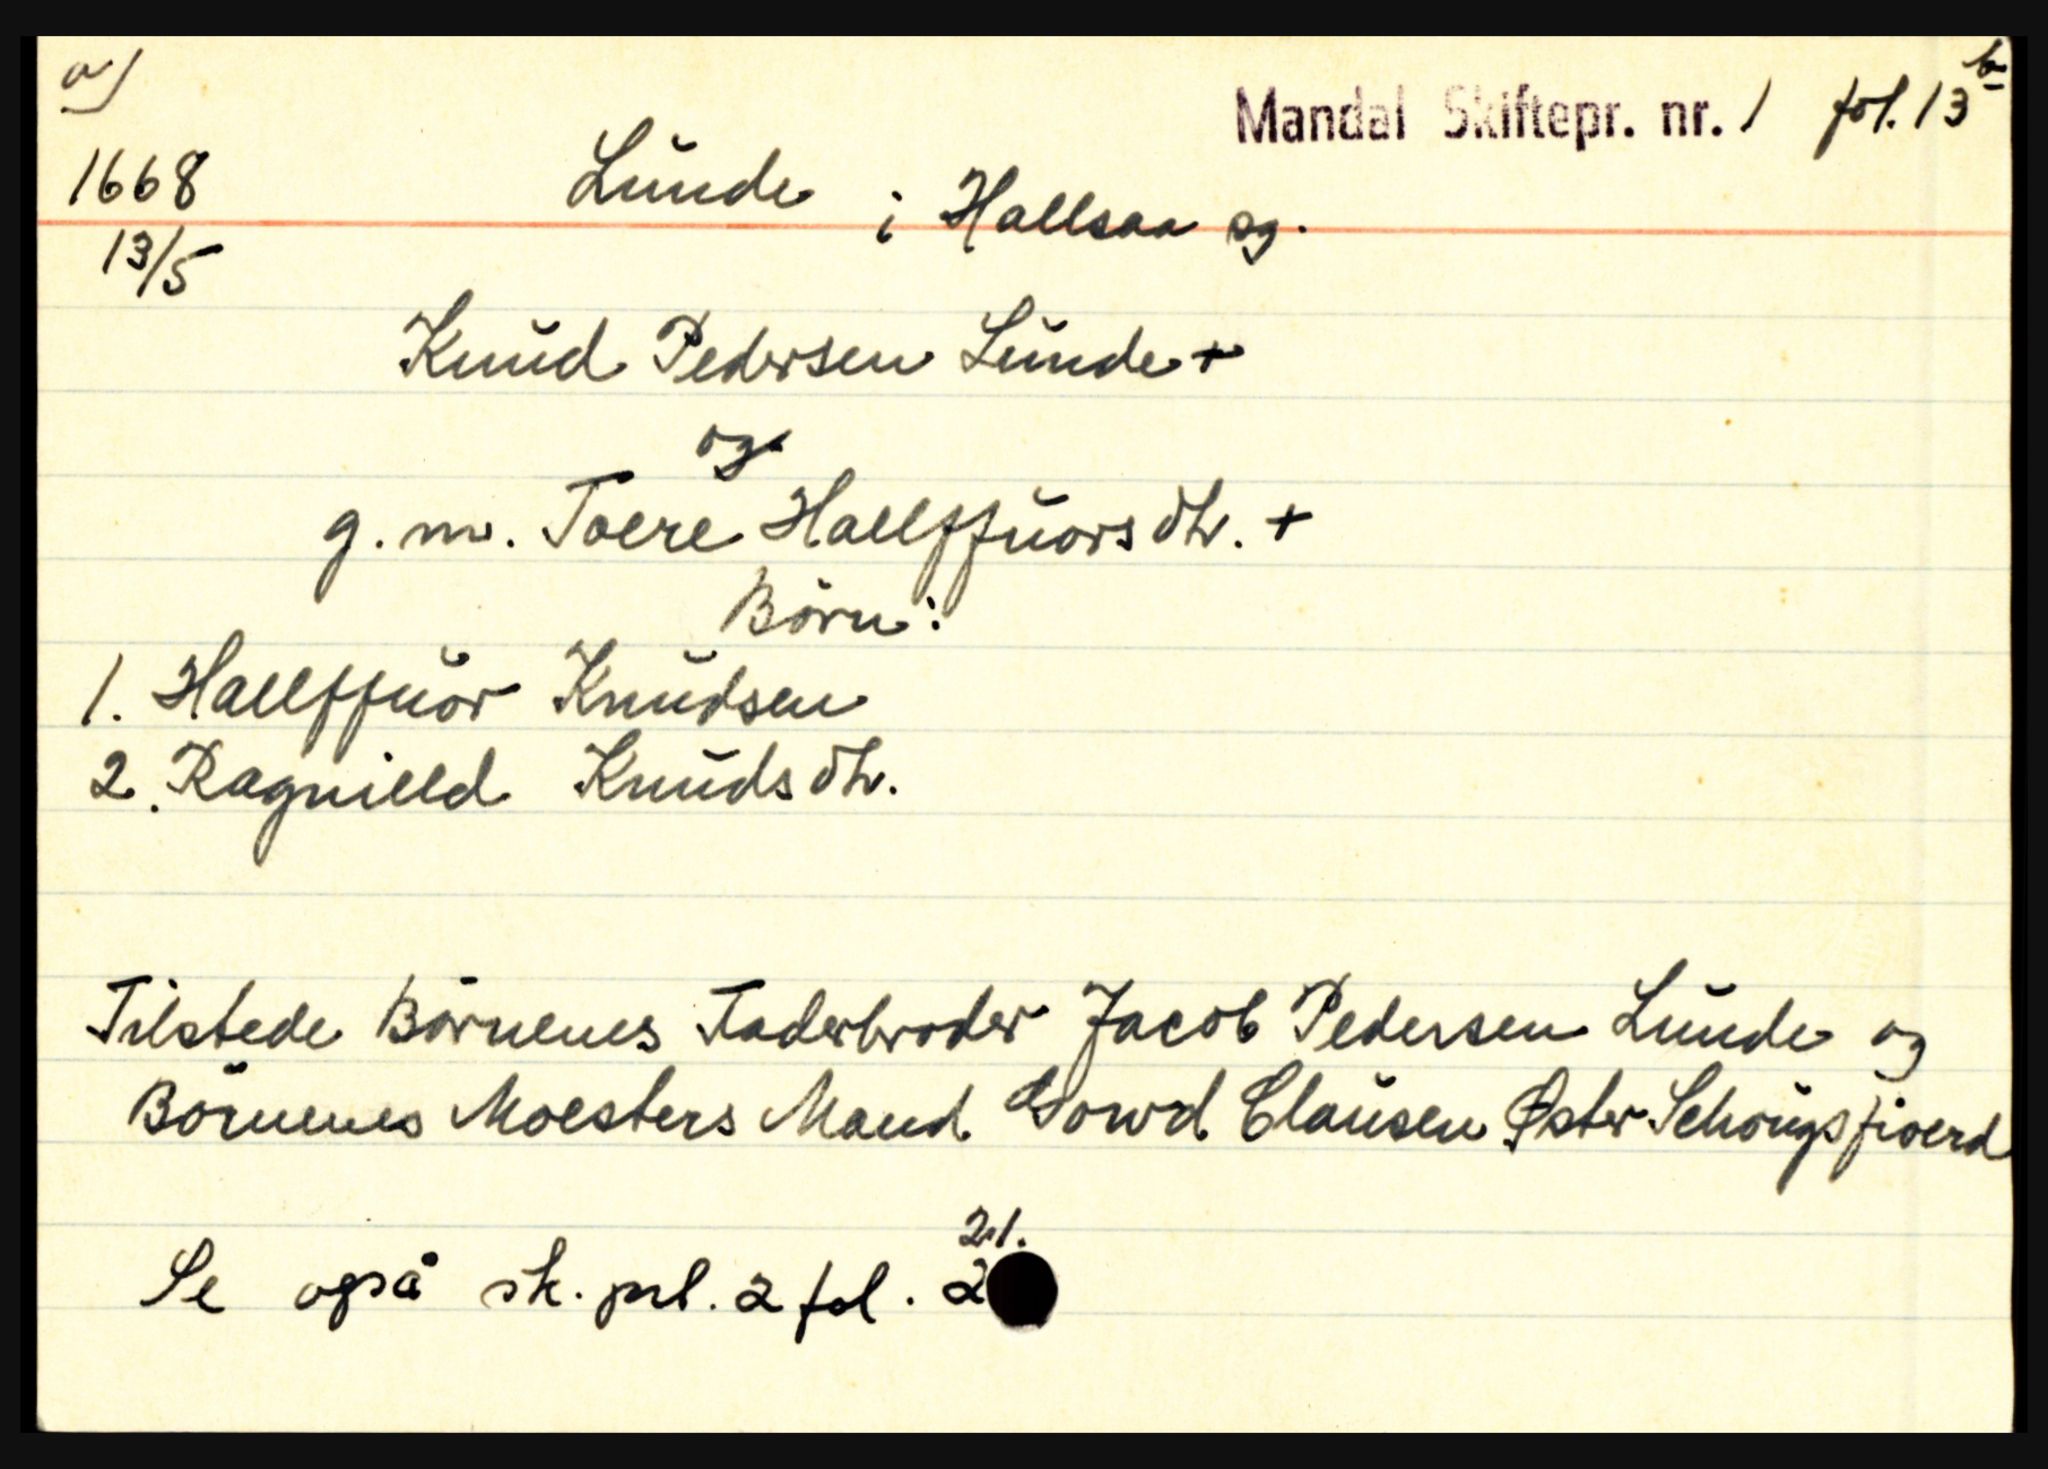 a)
Mandal Skiftepr. nr. 1 fol. 13b
1668
Lunde i Hallsaa sg.
13/5
Knud Pedersen Lunde +
og
g. m. Toere Hallffuors dtr. +
Börn:
1. Hallffuor Knudsen
2. Ragnilld Knuds dtr.
Tilstede Börnenes Faderbroder Jacob Pedersen Lunde og
Börnenes Moesters Mand Gowd Clausen Øster Schougsfioerd
21.
Se også sk. prl. 2 fol. 2